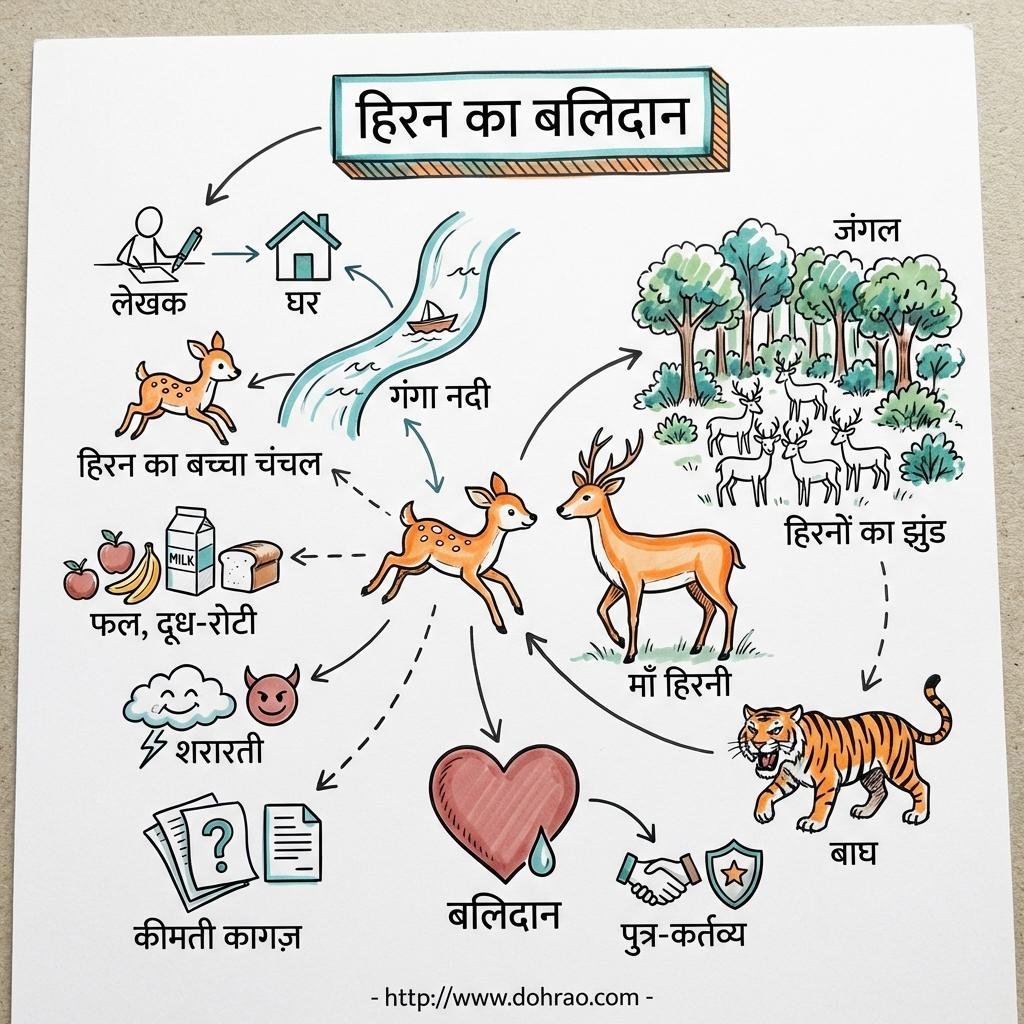 हिरन का बलिदान
लेखक
घर
जंगल
गंगा नदी
हिरन का बच्चा चंचल
हिरनों का झुंड
MILK
फल, दूध-रोटी
माँ हिरनी
शरारती
?
बाघ
कीमती कागज़
बलिदान
पुत्र-कर्तव्य
- http://www.dohrao.com -